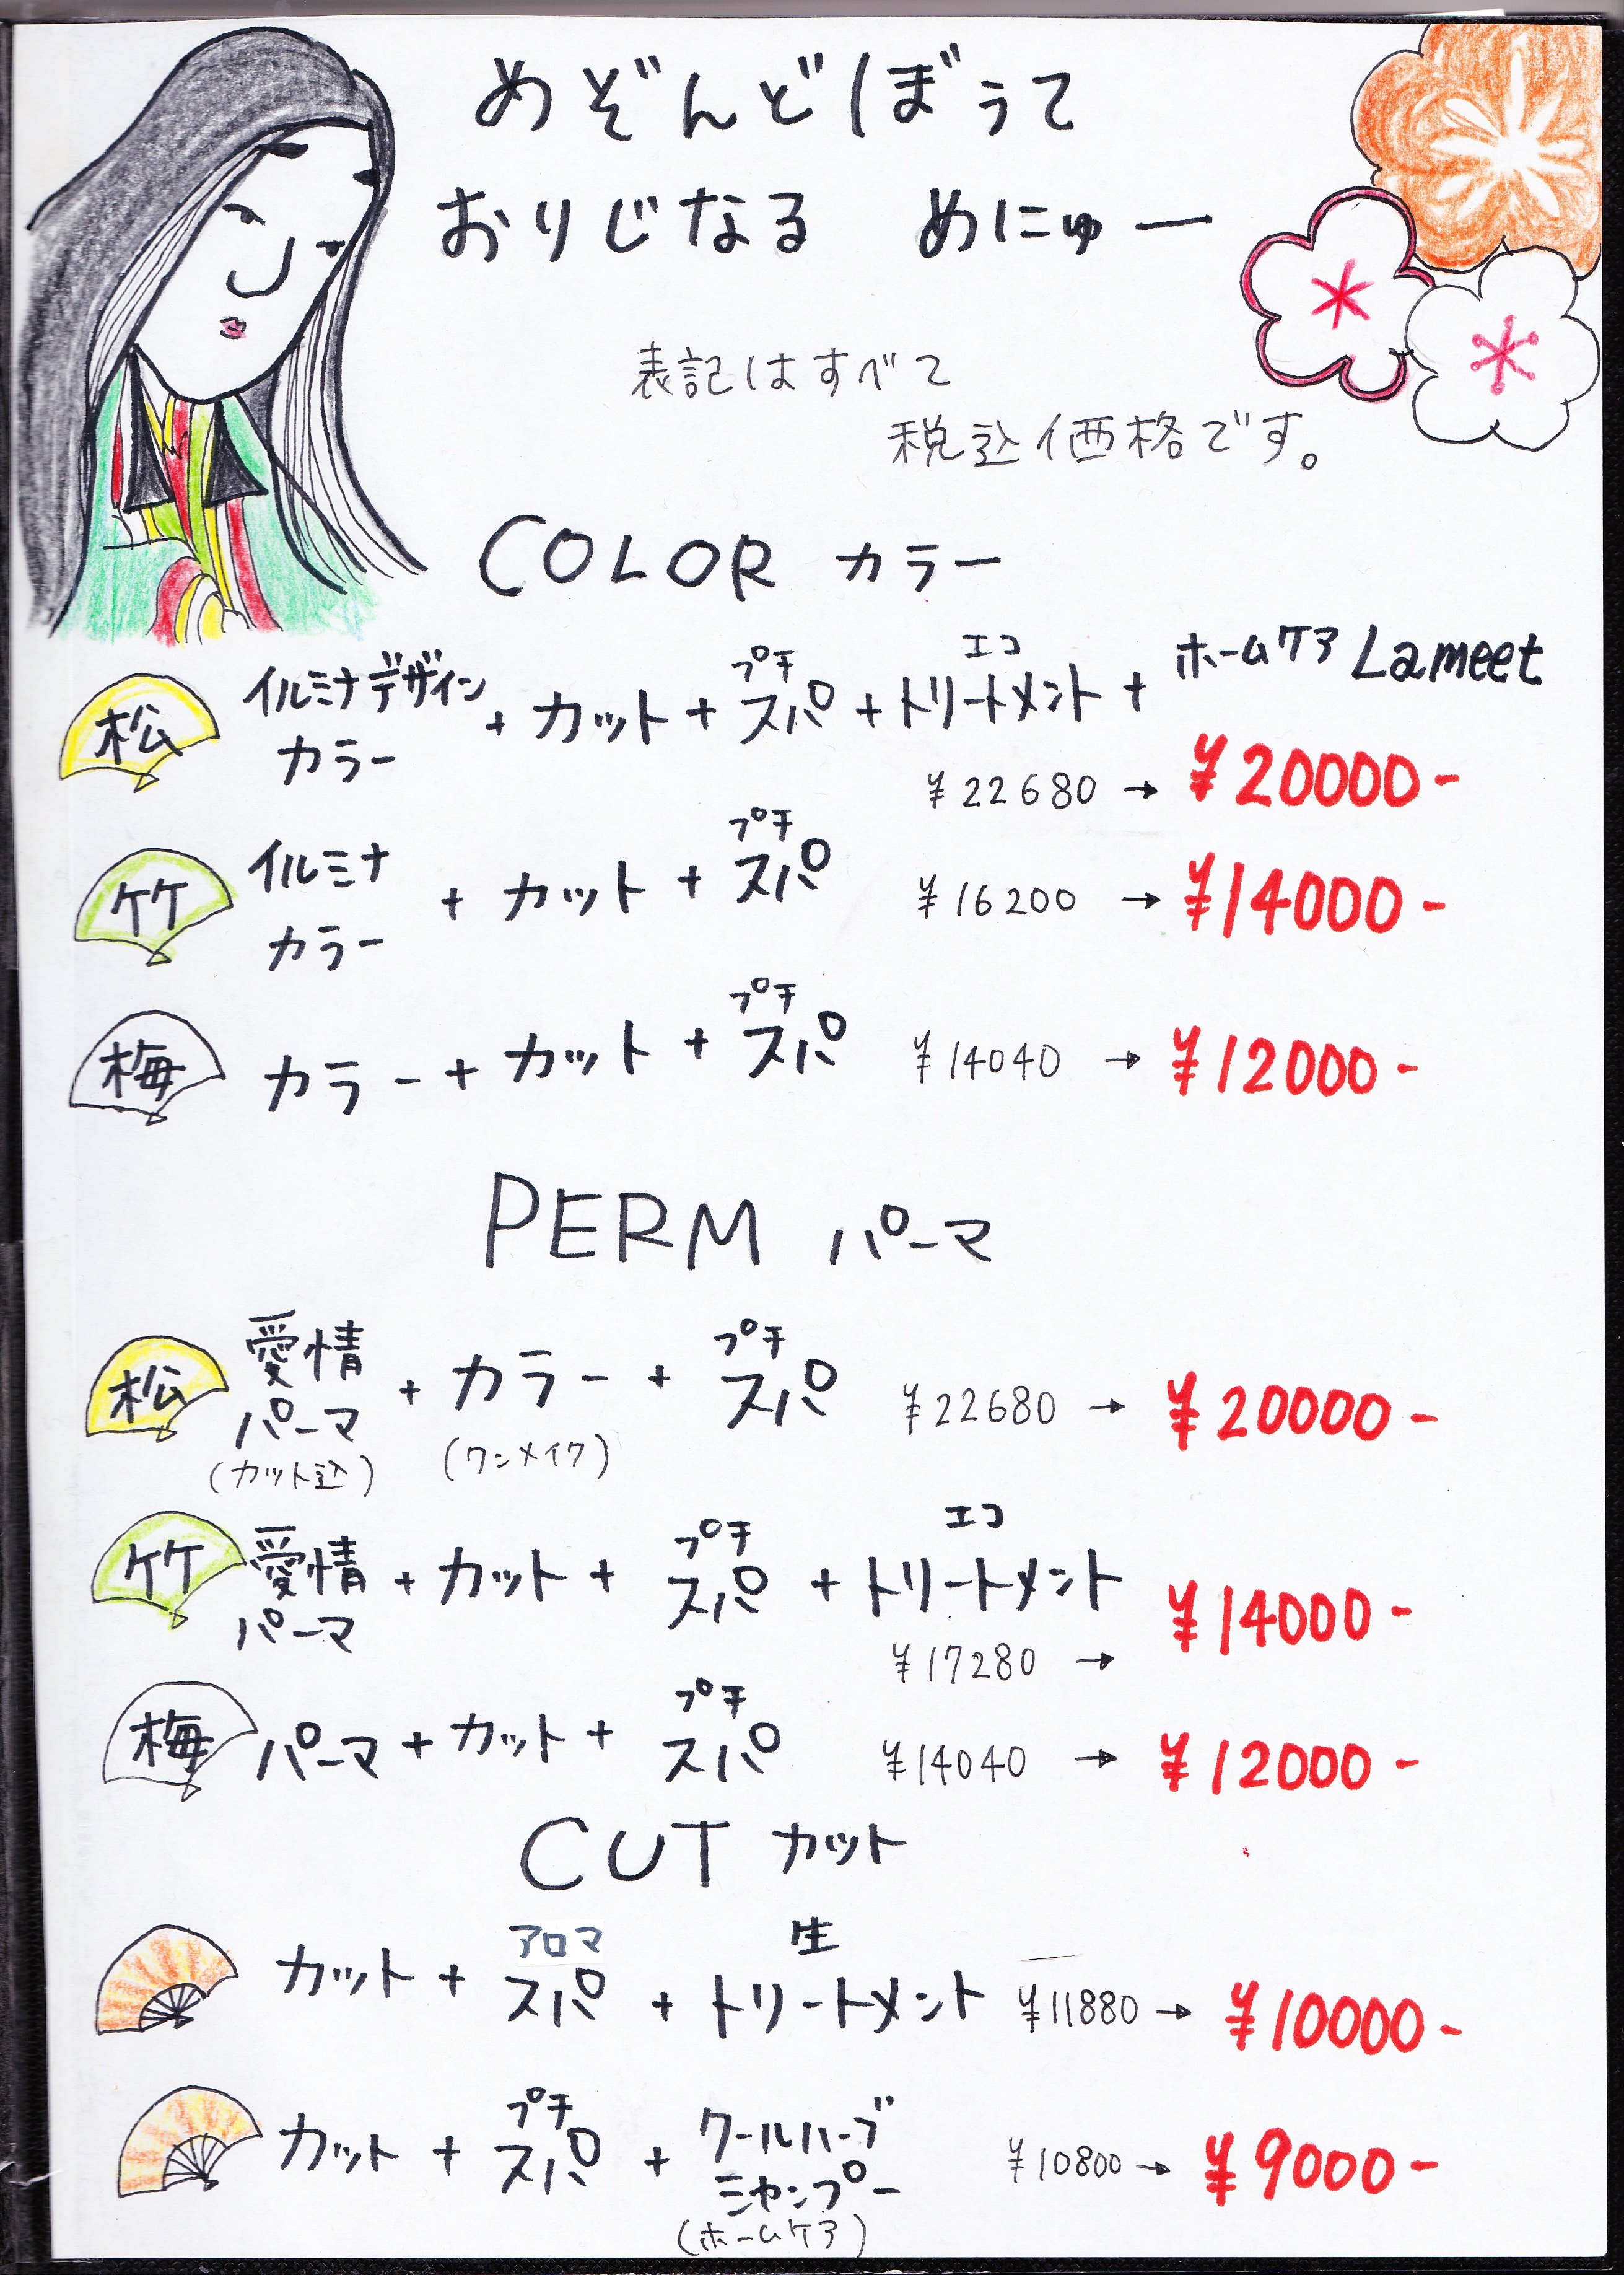 めぞんどぼうて
おりじなる めにゅー
表記はすべて
税込価格です。
COLOR カラー
松 イルミナデザインカラー + カット + プチスパ + エコトリートメント + ホームケア Lameet
¥22680 → ¥20000-
竹 イルミナカラー + カット + プチスパ ¥16200 → ¥14000-
梅 カラー + カット + プチスパ ¥14040 → ¥12000-
PERM パーマ
松 愛情パーマ + カラー + プチスパ ¥22680 → ¥20000-
(カット込) (ワンメイク)
竹 愛情パーマ + カット + プチスパ + エコトリートメント
¥17280 → ¥14000-
梅 パーマ + カット + プチスパ ¥14040 → ¥12000-
CUT カット
カット + アロマスパ + 生トリートメント ¥11880 → ¥10000-
カット + プチスパ + クールハーブシャンプー ¥10800 → ¥9000-
(ホームケア)